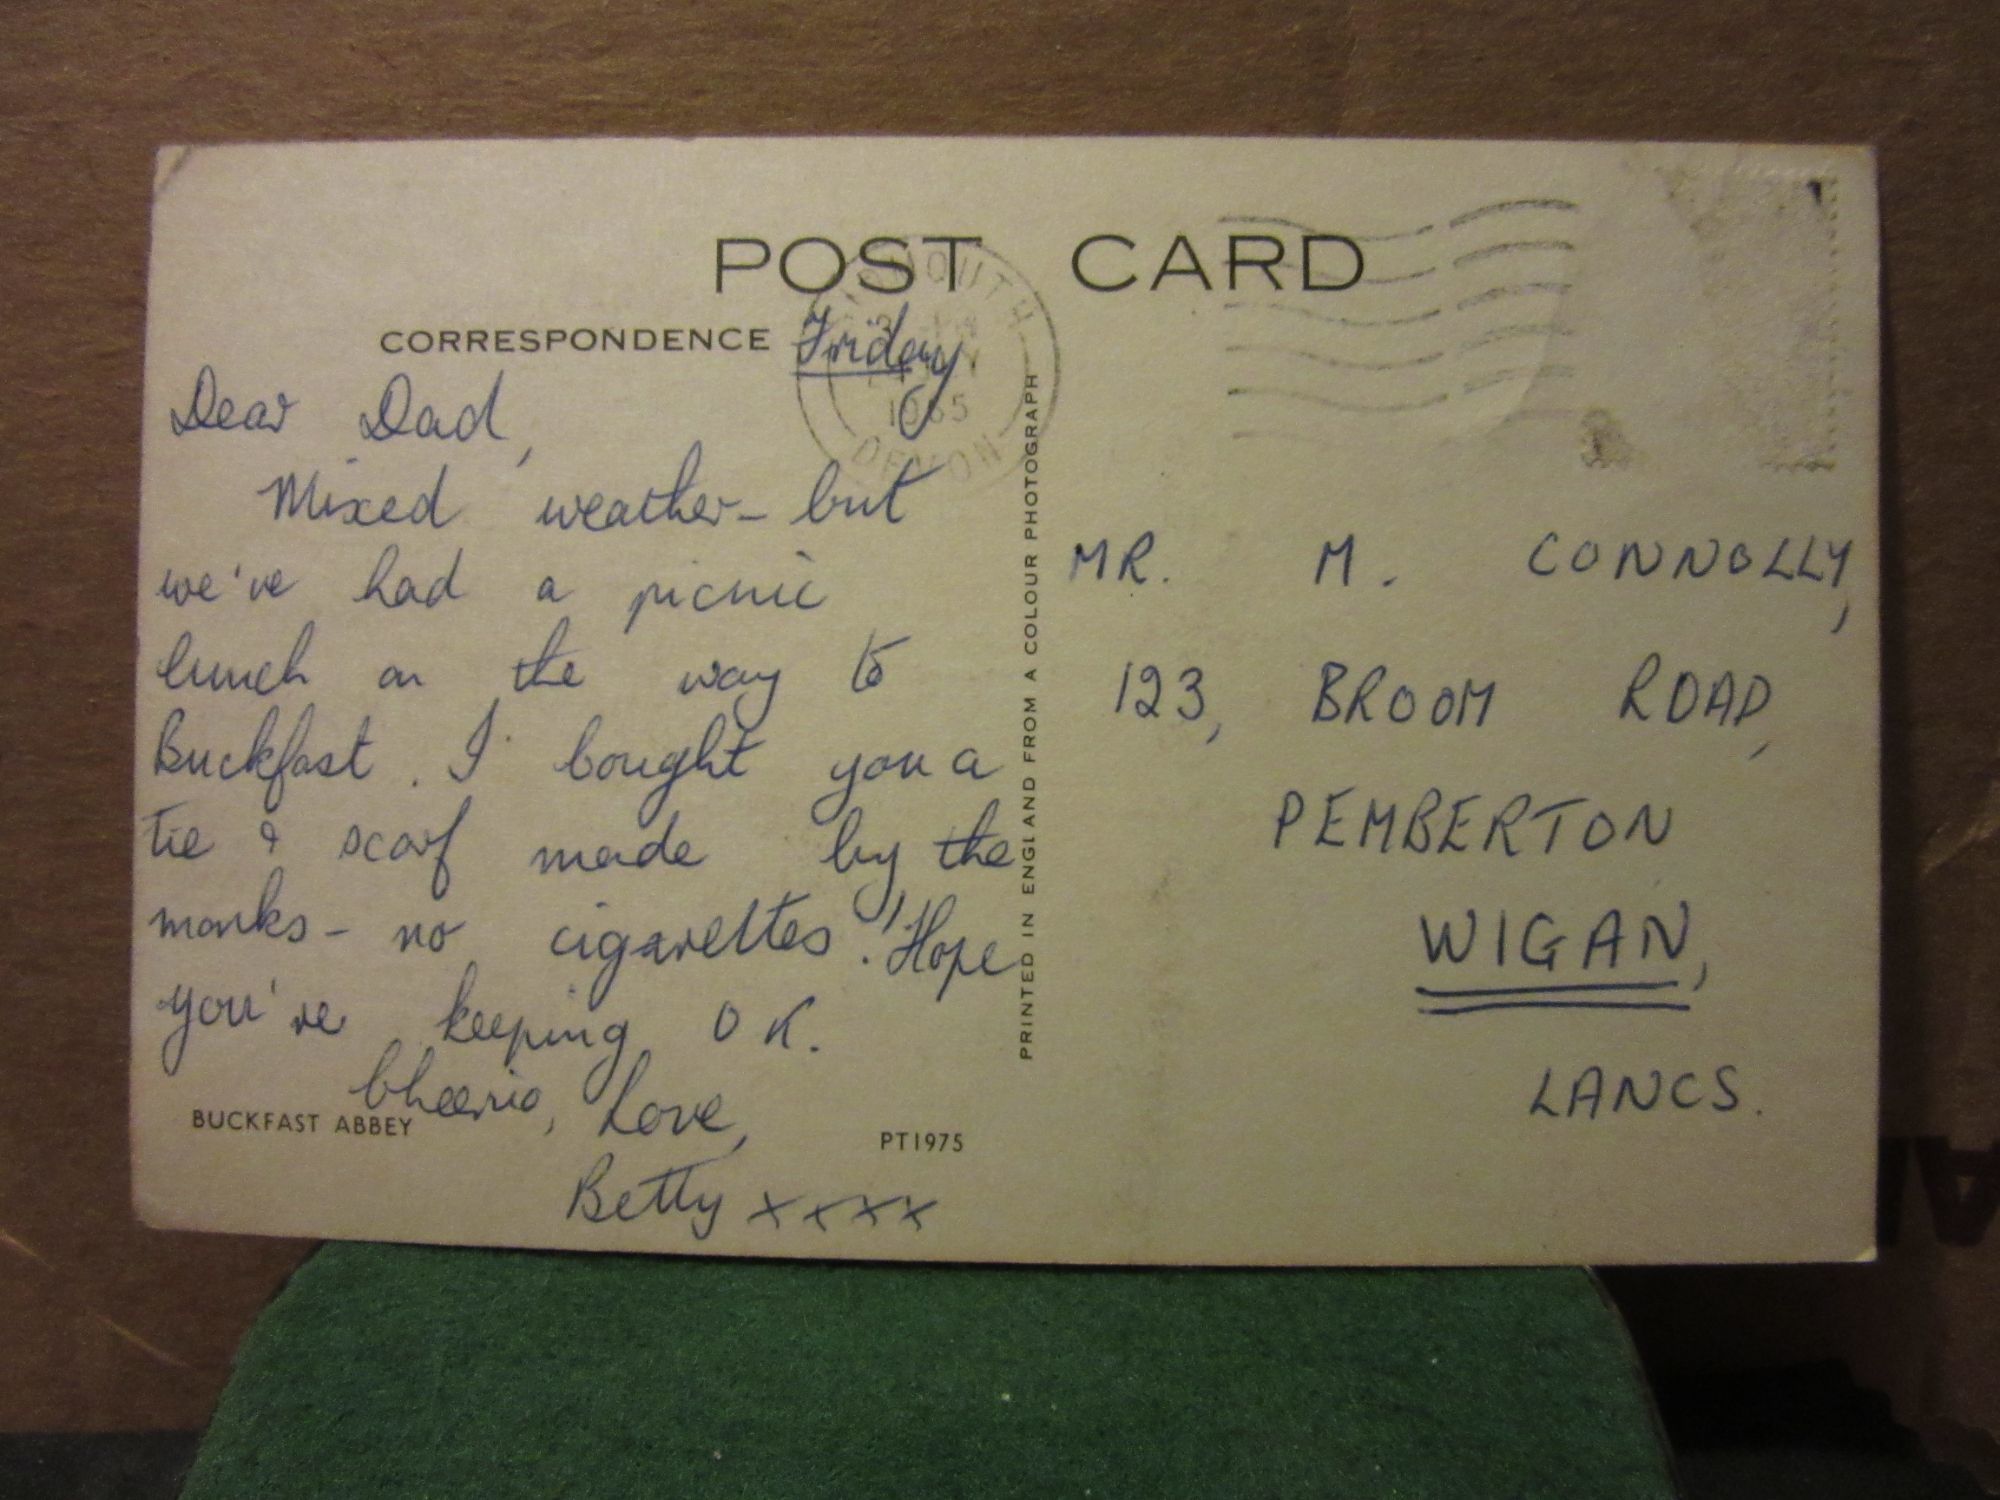 POST CARD
CORRESPONDENCE
Friday
1965
DEVON
Dear Dad,
Mixed weather - but
we've had a picnic
lunch on the way to
Buckfast. I bought you a
tie & scarf made by the
monks - no cigarettes! Hope
you're keeping OK.
Cheerio, Love,
Betty xxxx
BUCKFAST ABBEY
PT1975
PRINTED IN ENGLAND FROM A COLOUR PHOTOGRAPH
MR. M. CONNOLLY,
123, BROOM ROAD,
PEMBERTON
WIGAN,
LANCS.